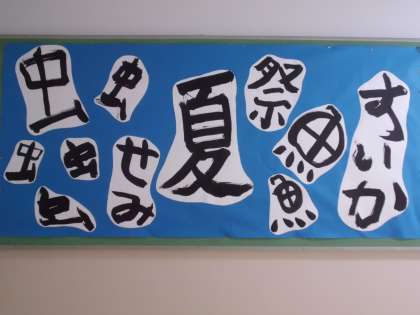 すいか
祭
魚
魚
夏
せみ
虫
虫
虫
虫
虫